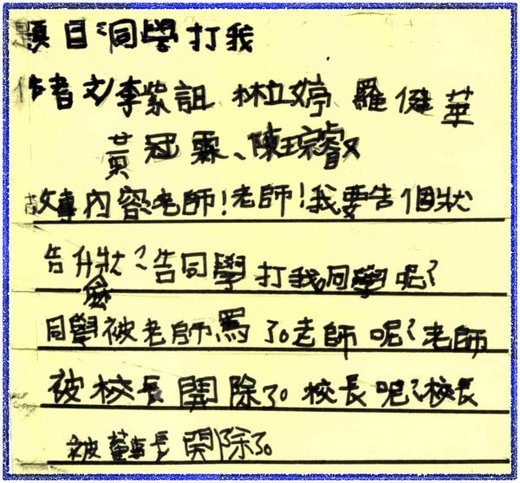 題目:同學打我
作者文/李紫詛 林立婷 羅健華
黃冠霖、陳琮叡
故事內容老師!老師!我要告個狀
告什麼狀?告同學打我同學呢?
同學被老師罵了。老師呢?老師
被校長開除了。校長呢?校長
被董事長開除了